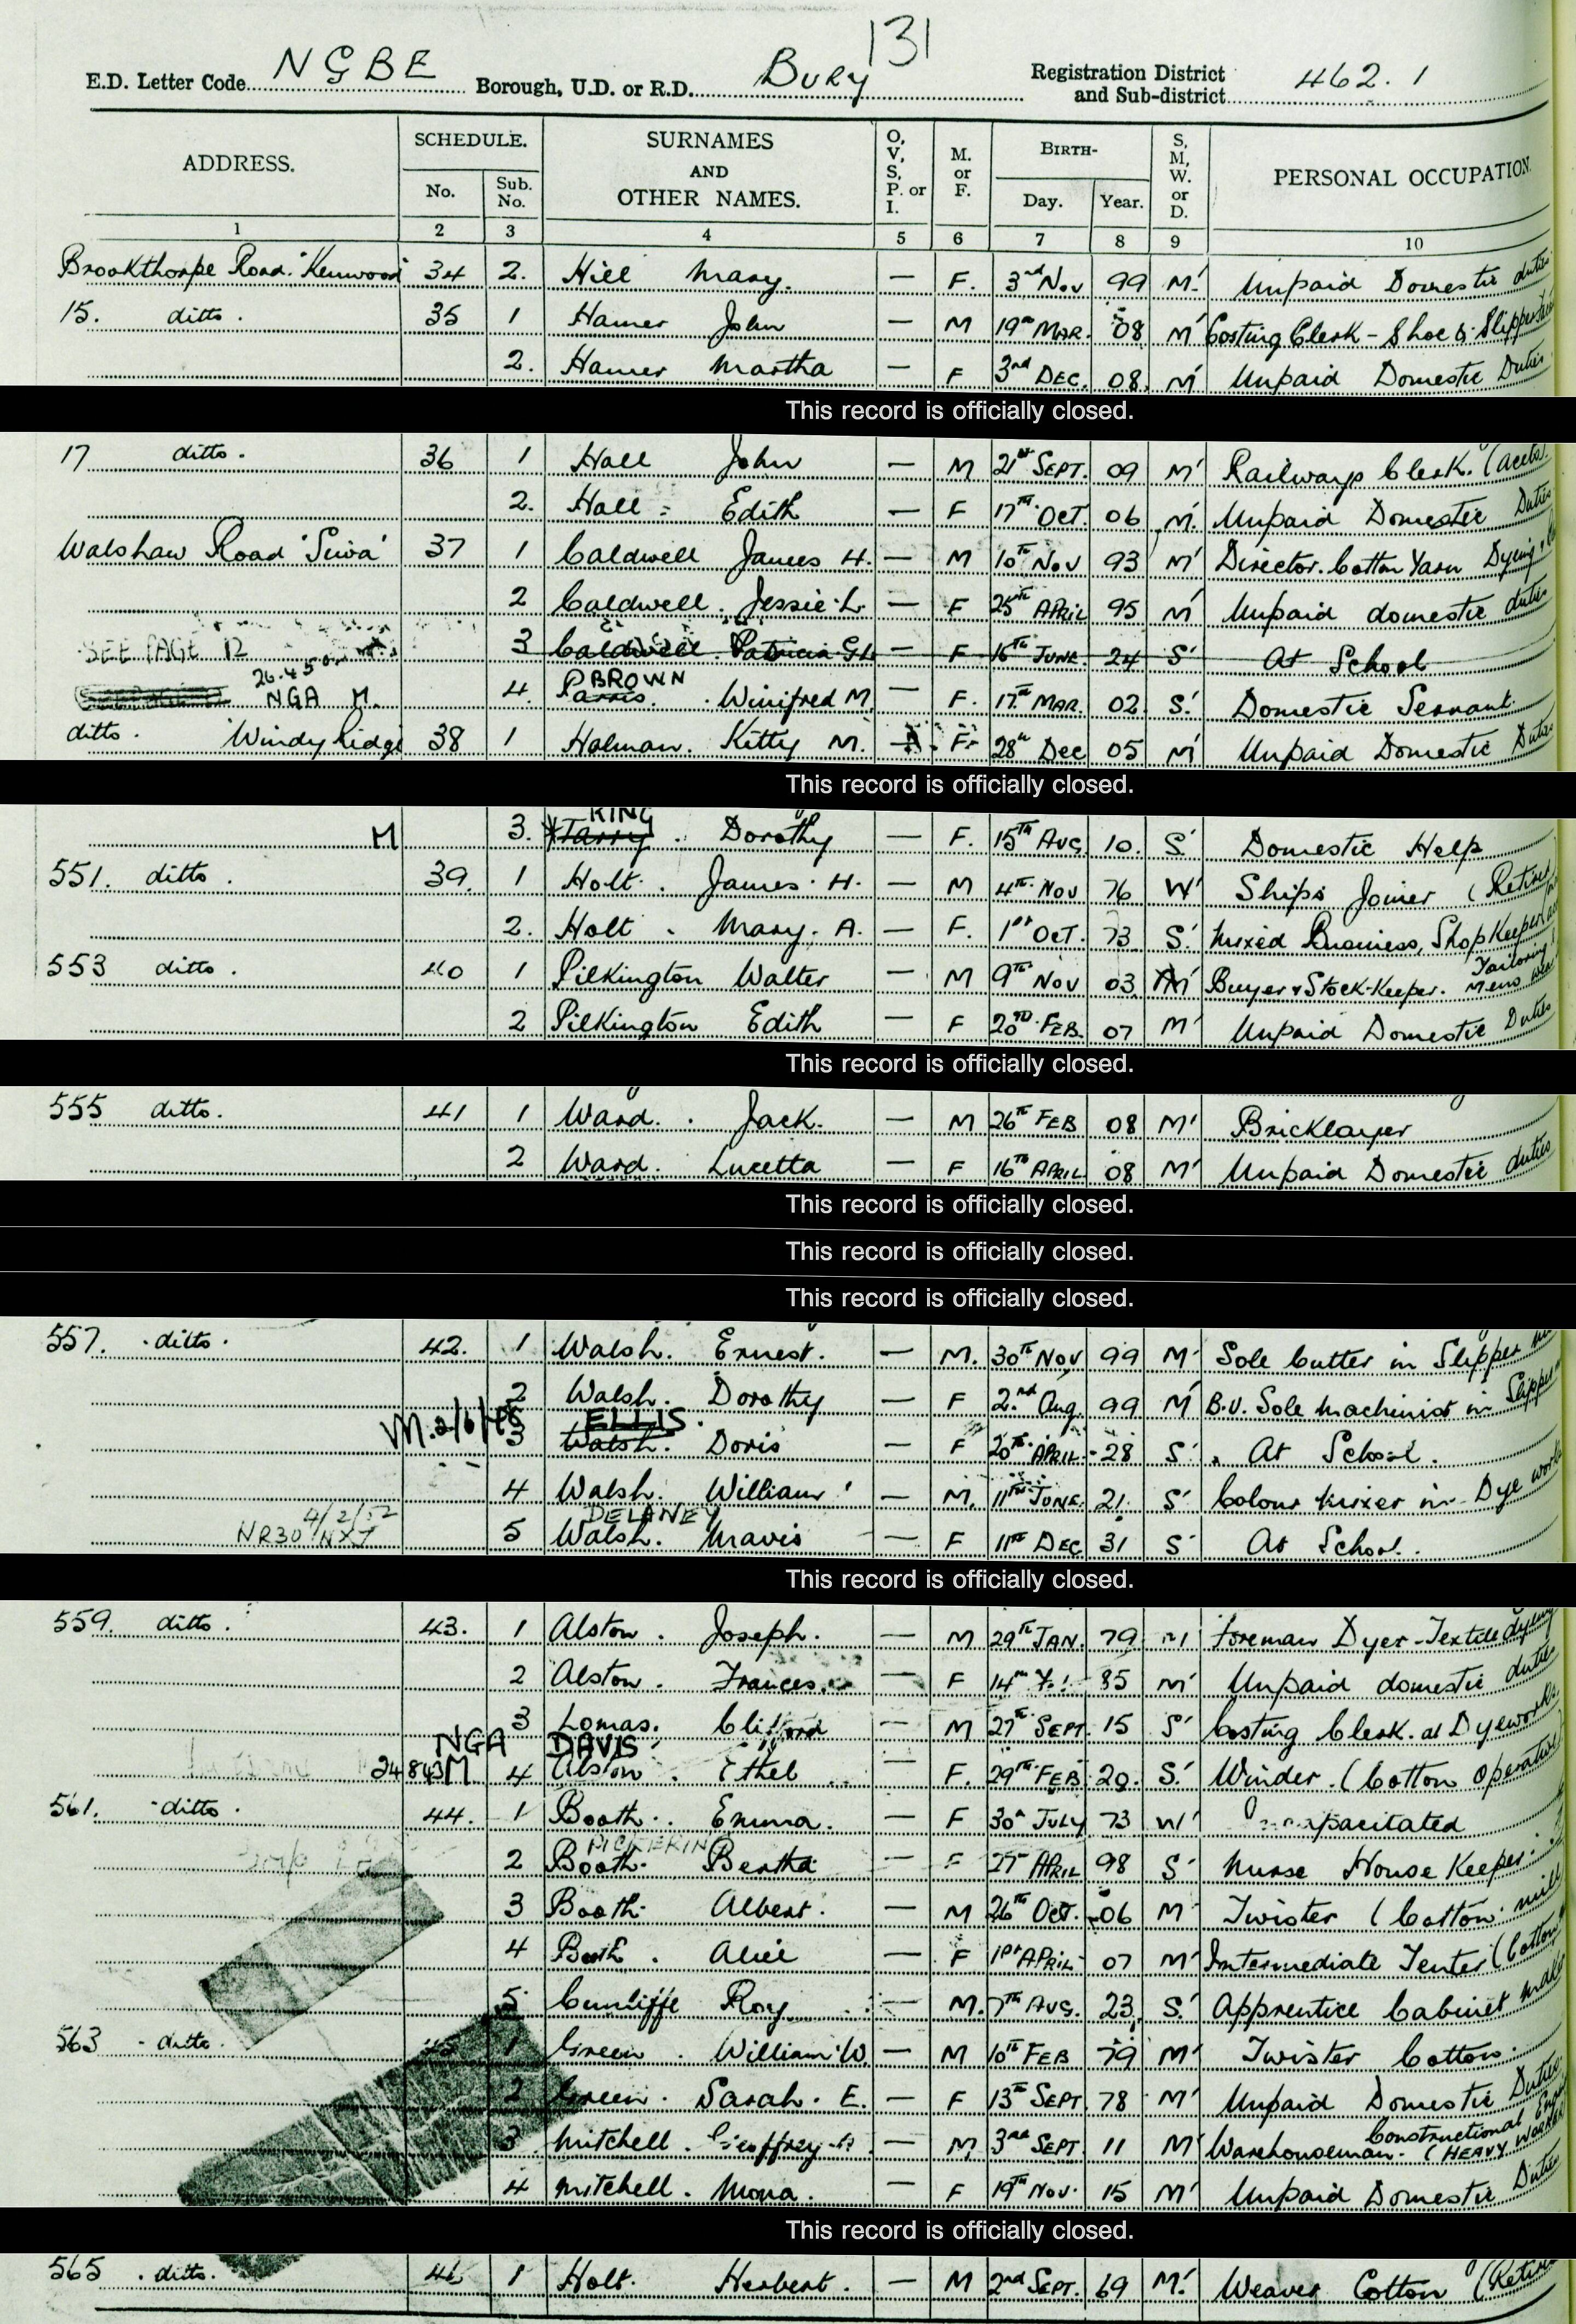 131
E.D. Letter Code NGBE Borough, U.D. or R.D. BURY Registration District and Sub-district 462.1
ADDRESS. SCHEDULE. No. Sub. No. SURNAMES AND OTHER NAMES. O, V, S, P. or I. M. or F. BIRTH- Day. Year. S, M, W. or D. PERSONAL OCCUPATION.
1 2 3 4 5 6 7 8 9 10
Brookthorpe Road. "Kenwood" 34 2. Hill Mary. — F. 3rd Nov 99 M. Unpaid Domestic duties
15. ditto. 35 1 Hamer John — M 19th MAR. 08 M Costing Clerk - Shoe & Slipper
2. Hamer Martha — F 3rd DEC. 08 M Unpaid Domestic Duties
This record is officially closed.
17 ditto. 36 1 Hall John — M 21st SEPT. 09 M Railways Clerk. (accts).
2. Hall Edith — F 17TH OCT. 06 M. Unpaid Domestic Duties
Walshaw Road 'Suva' 37 1 Caldwell James H. — M 10TH NOV 93 M Director. Cotton Yarn Dyeing
2 Caldwell. Jessie L. — F 25th APRIL 95 M Unpaid domestic duties
SEE PAGE 12 3 Caldwell. Patricia G.L. — F 16TH JUNE 24 S At School
26.4.50
BROWN
NGA M. 4. Parris. Winifred M. — F. 17th MAR. 02 S. Domestic Servant.
ditto. 'Windy Ridge 38 1 Holman. Kitty M. — F. 28th Dec 05 M Unpaid Domestic Duties
This record is officially closed.
KING
M 3. Tarry. Dorothy — F. 15TH AUG. 10. S. Domestic Help
551. ditto. 39. 1 Holt. James. H. — M 4TH Nov 76 W Ships Joiner (Retired
2. Holt. Mary. A. — F. 1st OCT. 73 S. Mixed Business, Shop Keeper
553 ditto. 40 1 Pilkington Walter — M 9TH Nov 03 M Buyer & Stock-Keeper. Tailoring Mens Wear
2 Pilkington Edith — F 20TH FEB. 07 M Unpaid Domestic Duties
This record is officially closed.
555 ditto. 41 1 Ward. Jack. — M 26TH FEB 08 M Bricklayer
2 Ward. Lucetta — F 16TH APRIL 08 M Unpaid Domestic duties
This record is officially closed.
This record is officially closed.
This record is officially closed.
557. ditto. 42. 1 Walsh. Ernest. — M. 30TH NOV 99 M Sole Cutter in Slipper
2 Walsh. Dorothy — F 2nd Aug. 99 M B.U. Sole Machinist in Slipper
ELLIS.
3 Walsh. Doris — F 20TH APRIL 28 S. At School.
4 Walsh. William — M. 11TH JUNE. 21. S Colour Mixer in Dye works
4/2/52 DELANEY
NR30 5 Walsh. Mavis — F 11TH DEC. 31 S At School.
This record is officially closed.
559. ditto. 43. 1 Alston. Joseph. — M 29TH JAN. 79 M Foreman Dyer - Textile dyeing
2 Alston. Frances. — F 14th 85 M Unpaid domestic duties
3 Lomas. Clifford — M 27TH SEPT. 15 S Costing Clerk. at Dyeworks
NGA DAVIS
24843 M 4 Alston. Ethel — F. 29TH FEB. 20. S. Winder. (Cotton Operative)
561. ditto. 44. 1 Booth. Emma. — F 30th JULY 73 W Incapacitated
PICKERING
2 Booth. Bertha — F 27th APRIL 98 S Nurse House Keeper.
3 Booth. Albert. — M 26TH OCT. 06 M Twister (Cotton mill
4 Booth. Alice — F 1st APRIL 07 M Intermediate Tenter (Cotton
5 Cunliffe Roy — M. 7TH AUG. 23 S. Apprentice Cabinet Maker
563 ditto. 45 1 Green. William W. — M 10TH FEB 79 M Twister Cotton.
2 Green. Sarah. E. — F 13TH SEPT. 78 M Unpaid Domestic Duties
3 Mitchell. Geoffrey — M 3rd SEPT. 11 M Warehouseman. Constructional (HEAVY
4 Mitchell. Mona. — F 19TH Nov. 15 M Unpaid Domestic Duties
This record is officially closed.
565 ditto. 46 1 Holt. Herbert. — M 2nd SEPT. 69 M. Weaver Cotton (Retired